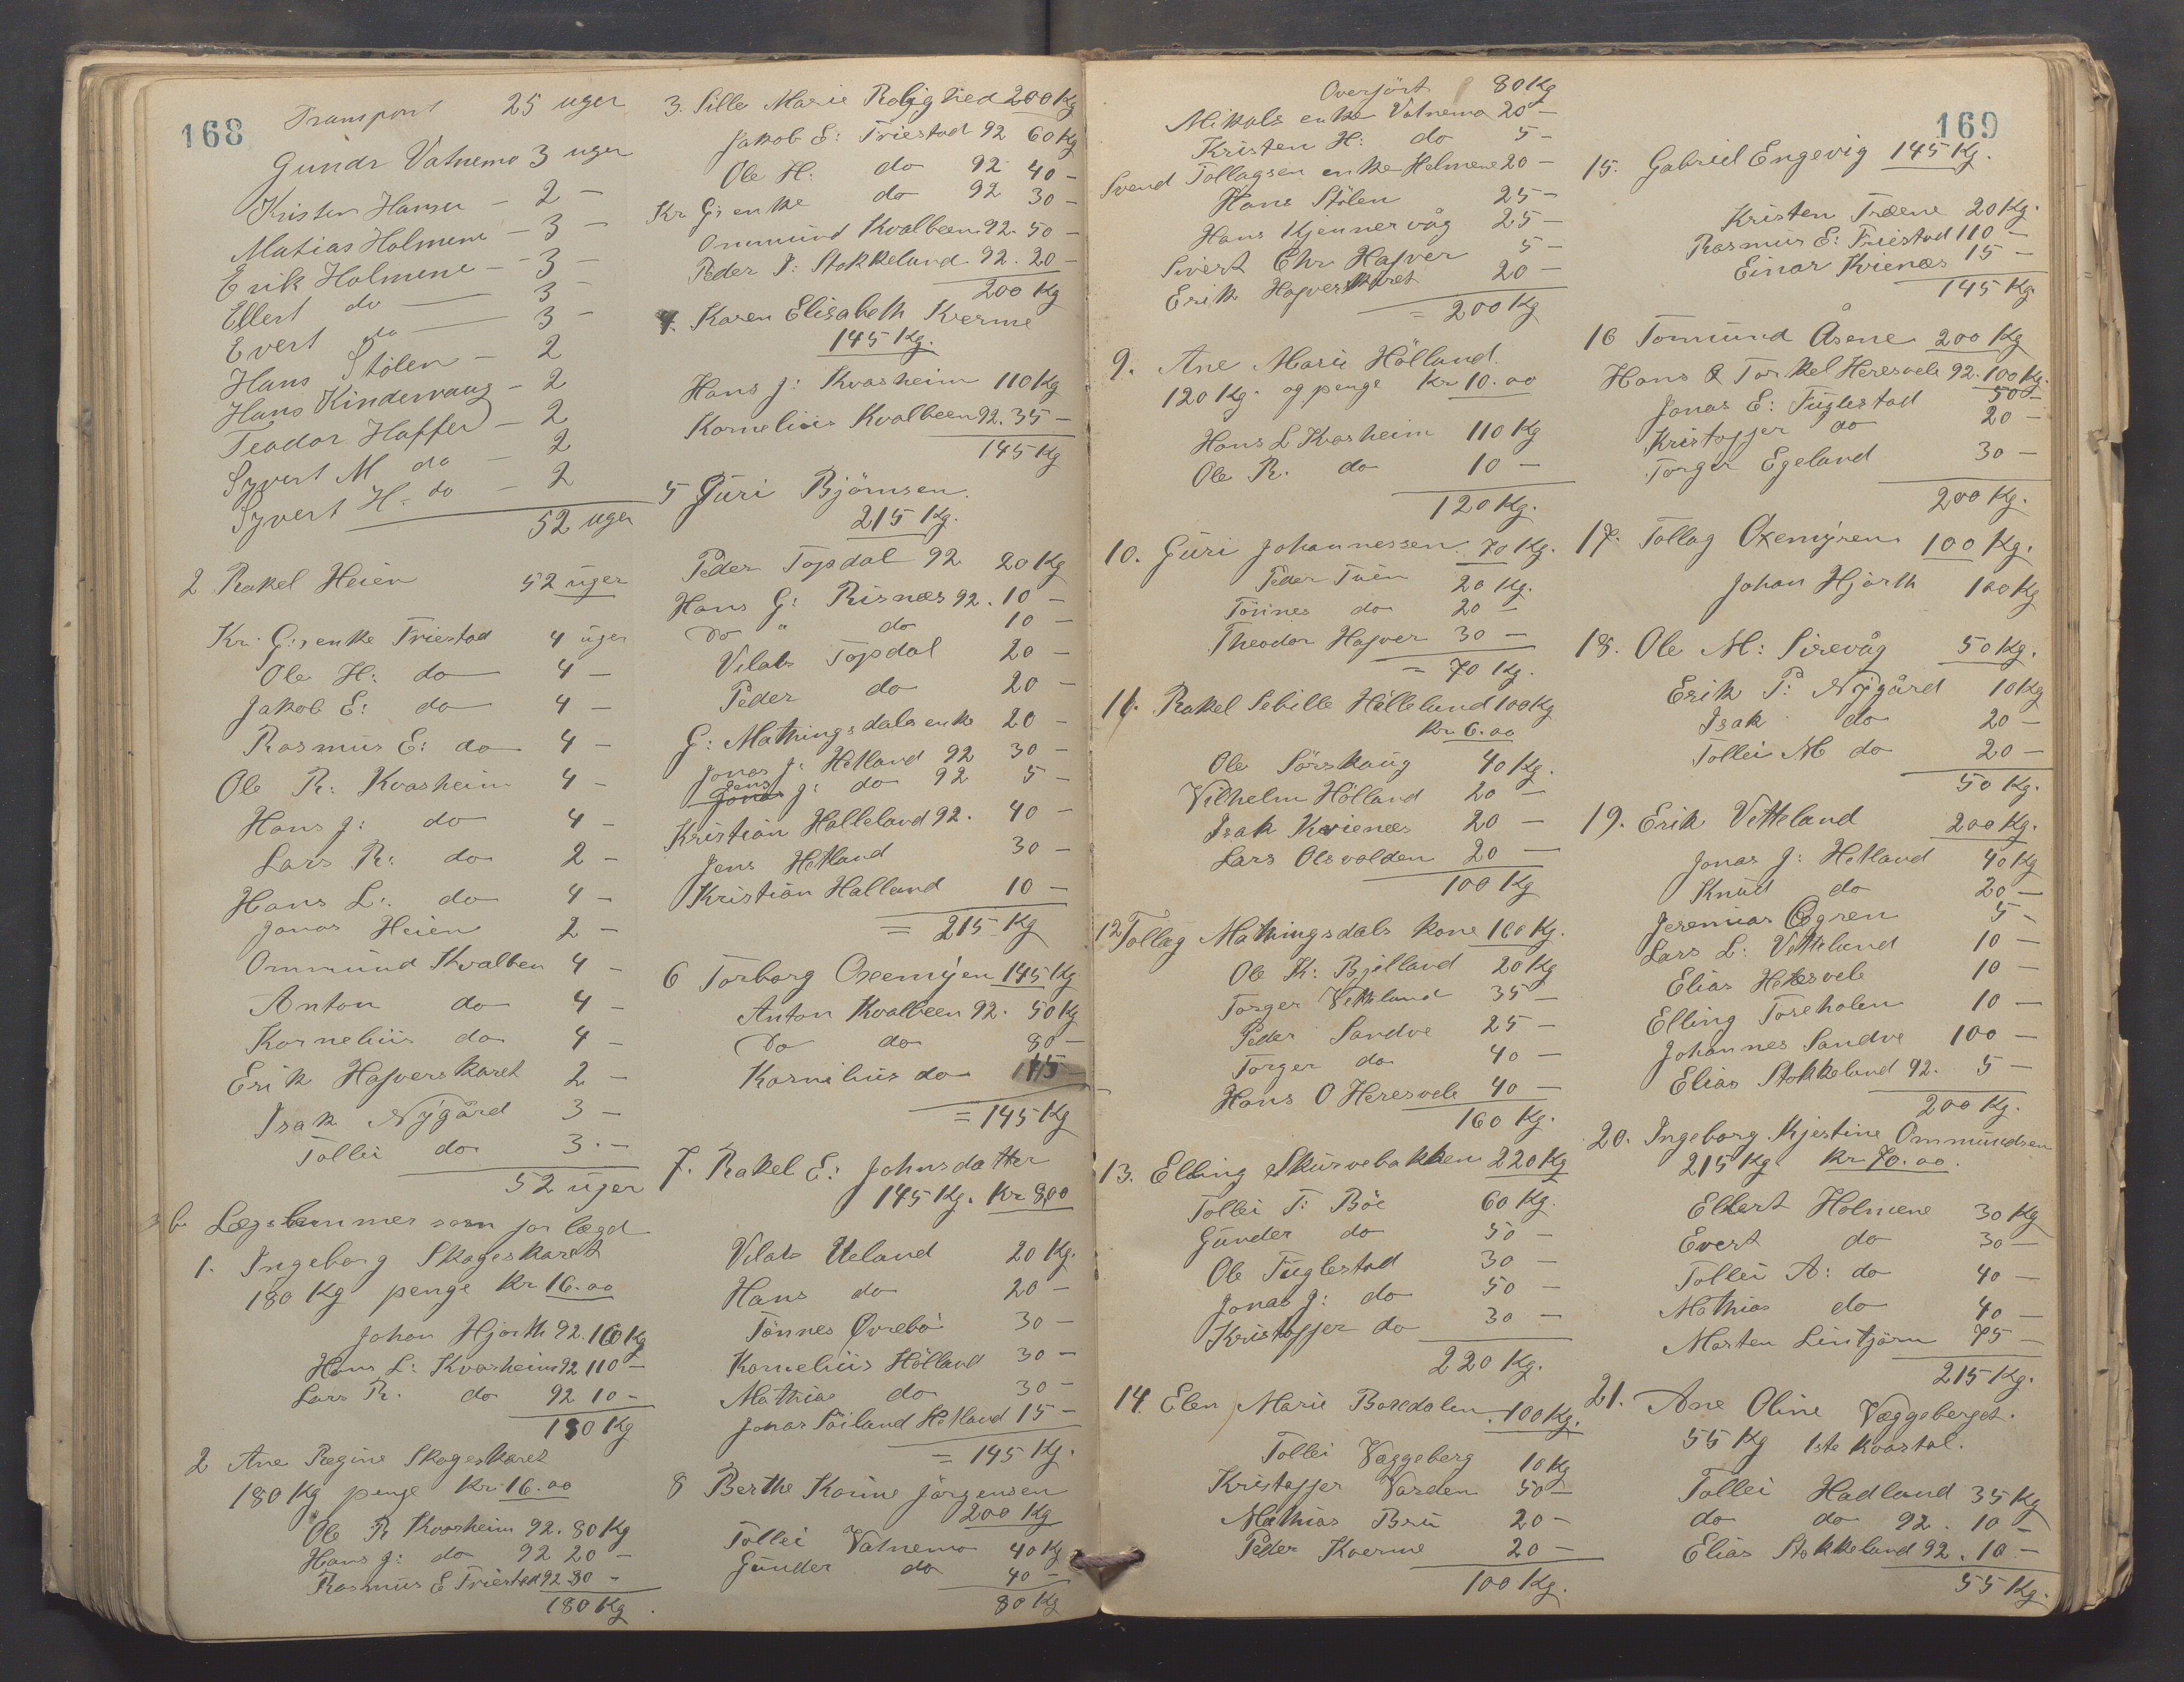 168
Transport 25 uger
Gundr Vatnemo 3 uger
Kristen Hansen - 2 -
Matias Holmene - 3 -
Erik Holmene - 3 -
Ellert do - 3 -
Evert do - 3 -
Hans Stölen - 2
Hans Kindervaag - 2
Teodor Haffer - 2
Syvert M do - 2
Syvert H. do - 2
52 uger
2 Rakel Heien 52 uger
Kr. G: enke Friestad 4 uger
Ole H: do 4 -
Jakob E: do 4 -
Rasmus E: do 4 -
Ole R: Kvasheim 4 -
Hans J: do 4 -
Lars R: do 2 -
Hans L: do 4 -
Jonas Heien 2 -
Ommund Kvalben 4 -
Anton do 4 -
Kornelius do 4 -
Erik Hafverskaret 2 -
Isak Nÿgård 3 -
Tollei do 3. -
52 uger
b Lægslemmer som for lægd
1. Ingeborg Skageskaret
180 Kg penge Kr 16.00
Johan Hjorth 92. 60 Kg
Hans L: Kvasheim 92 110 -
Lars R. do 92 10 -
180 Kg
2 Ane Regine Skageskaret
180 Kg penge Kr. 16.00
Ole R Kvasheim 92. 80 Kg
Hans J: do 92 20 -
Rasmus E Friestad 92 80 -
180 Kg.
3. Sille Marie Rolighed 200 Kg
Jakob E: Friestad 92 60 Kg
Ole H: do 92 40 -
Kr G: enke do 92 30 -
Ommund Kvalbeen 92. 50 -
Peder P: Stokkeland 92. 20 -
200 Kg
4. Karen Elisabeth Kverme
145 Kg.
Hans J: Kvasheim 110 Kg
Kornelius Kvalbeen 92. 35 -
145 Kg
5 Guri Björnsen.
215 Kg.
Peder Topdal 92 20 Kg
Hans G: Risnæs 92. 10 -
Do " do 10 -
Velats Topdal 20 -
Peder do 20 -
G: Mathingsdals enke 20 -
Jonas J: Hetland 92 30 -
Jens J: do 92 5 -
Kristian Halleland 92. 40 -
Jens Hetland 30 -
Kristian Halland 10 -
= 215 Kg
6 Torborg Oxemÿen 145 Kg
Anton Kvalbeen 92. 50 Kg
Do do 80 -
Kornelius do 15 -
= 145 Kg
7. Rakel E: Johnsdatter
145 Kg. Kr 8,00
Velats Ueland 20 Kg.
Hans do 20 -
Tönnes Øvrebö 30 -
Kornelius Hölland 30 -
Mathias do 30 -
Jonas Söiland Hetland 15 -
= 145 Kg.
8 Berthe Karine Jörgensen
200 Kg
Tollei Vatnemo 40 Kg
Gunder do 40 -
80 Kg
169
Overfört 80 Kg
Mikkals enke Vatnemo 20 -
Kristen H: do 5 -
Svend Tollagsen enke Holmene 20 -
Hans Stölen 25 -
Hans Kjennervåg 25 -
Sivert Chr Hafver 5 -
Erik Hafverskaret 20 -
= 200 Kg
9. Ane Marie Hölland.
120 Kg. og penge Kr 10.00
Hans L Kvasheim 110 Kg
Ole R. do 10 -
120 Kg.
10. Guri Johannessen 70 Kg.
Peder Tuen 20 Kg.
Tönnes do 20 -
Theodor Hafver 30 -
= 70 Kg.
11. Rakel Sebille Hölleland 100 Kg
Kr 6.00
Ole Sörskaug 40 Kg.
Vilhelm Hölland 20 -
Isak Kvienæs 20 -
Lars Olsvolden 20 -
100 Kg
12 Tollag Mathingsdals kone 160 Kg.
Ole K: Bjelland 20 Kg
Torger Vetteland 35 -
Peder Sandve 25 -
Torger do 40 -
Hans O Heresvele 40 -
160 Kg.
13. Elling Skurvebakken 220 Kg
Tollei T: Böe 60 Kg.
Gunder do 50 -
Ole Fuglestad 30 -
Jonas J: do 50 -
Kristoffer do 30 -
220 Kg.
14. Elen Marie Boredalen. 100 Kg.
Tollei Væggeberg 10 Kg
Kristoffer Varden 50 -
Mathias Bru 20 -
Peder Kverme 20 -
100 Kg.
15. Gabriel Engevig 145 Kg.
Kristen Træene 20 Kg.
Rasmus E: Friestad 110 -
Einar Kvienæs 15 -
145 Kg.
16 Tormund Åsene 200 Kg
Hans & Torkel Heresvele 92. 100 Kg.
Jonas E: Fuglestad 50 -
Kristoffer do 20 -
Torger Egeland 30 -
200 Kg.
17. Tollag Oxemÿren 100 Kg.
Johan Hjorth 100 Kg
18. Ole M: Sirevåg 50 Kg.
Erik P: Nÿgård 10 Kg
Isak do 20 -
Tollei M do 20 -
50 Kg.
19. Erik Vetteland 200 Kg.
Jonas J: Hetland 40 Kg
Knud do 20 -
Jeremias Øgren 5 -
Lars L: Vetteland 10 -
Elias Heresvele 10 -
Elling Toreholen 10 -
Johannes Sandve 100 -
Elias Stokkeland 92. 5 -
200 Kg.
20. Ingeborg Kjestine Ommundsen
215 Kg Kr 70.00.
Ellert Holmene 30 Kg
Evert do 30 -
Tollei A: do 40 -
Mathias do 40 -
Morten Lintjörn 75 -
215 Kg.
21. Ane Oline Væggeberget.
55 Kg 1ste kvartal.
Tollei Hadland 35 Kg
do do 92. 10 -
Elias Stokkeland 92. 10 -
55 Kg.